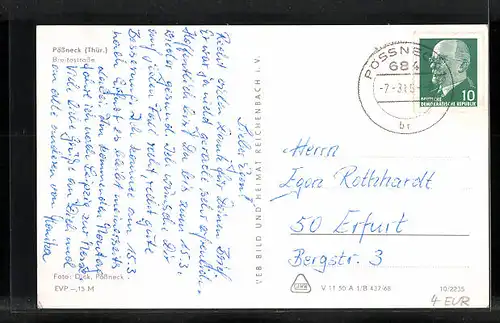 Pößneck (Thür.)
Breitestraße
Lieber Egon!
Recht vielen Dank für Deinen Brief.
Er war ja nicht gerade sehr erfreulich.
Hoffentlich bist Du bis zum 15.3.
wieder gesund. Ich wünsche Dir
auf jeden Fall recht gute
Besserung. Ich komme am 15.3
nach Erfurt es bleibt meinerseits
dabei. Am kommenden Montag
fahre ich nach Leipzig zur Messe.
Viele liebe Grüße an Dich und
an alle anderen von Monika
Foto: Dick, Pößneck
EVP –,15 M
VEB BILD UND HEIMAT REICHENBACH i. V.
PÖSSNECK
684
-7.-3
br
10
DEUTSCHE
DEMOKRATISCHE REPUBLIK
Herrn
Egon Rothhardt
50 Erfurt
Bergstr. 3
V 11 50 A 1/B 437/68
10/2235
4 EUR